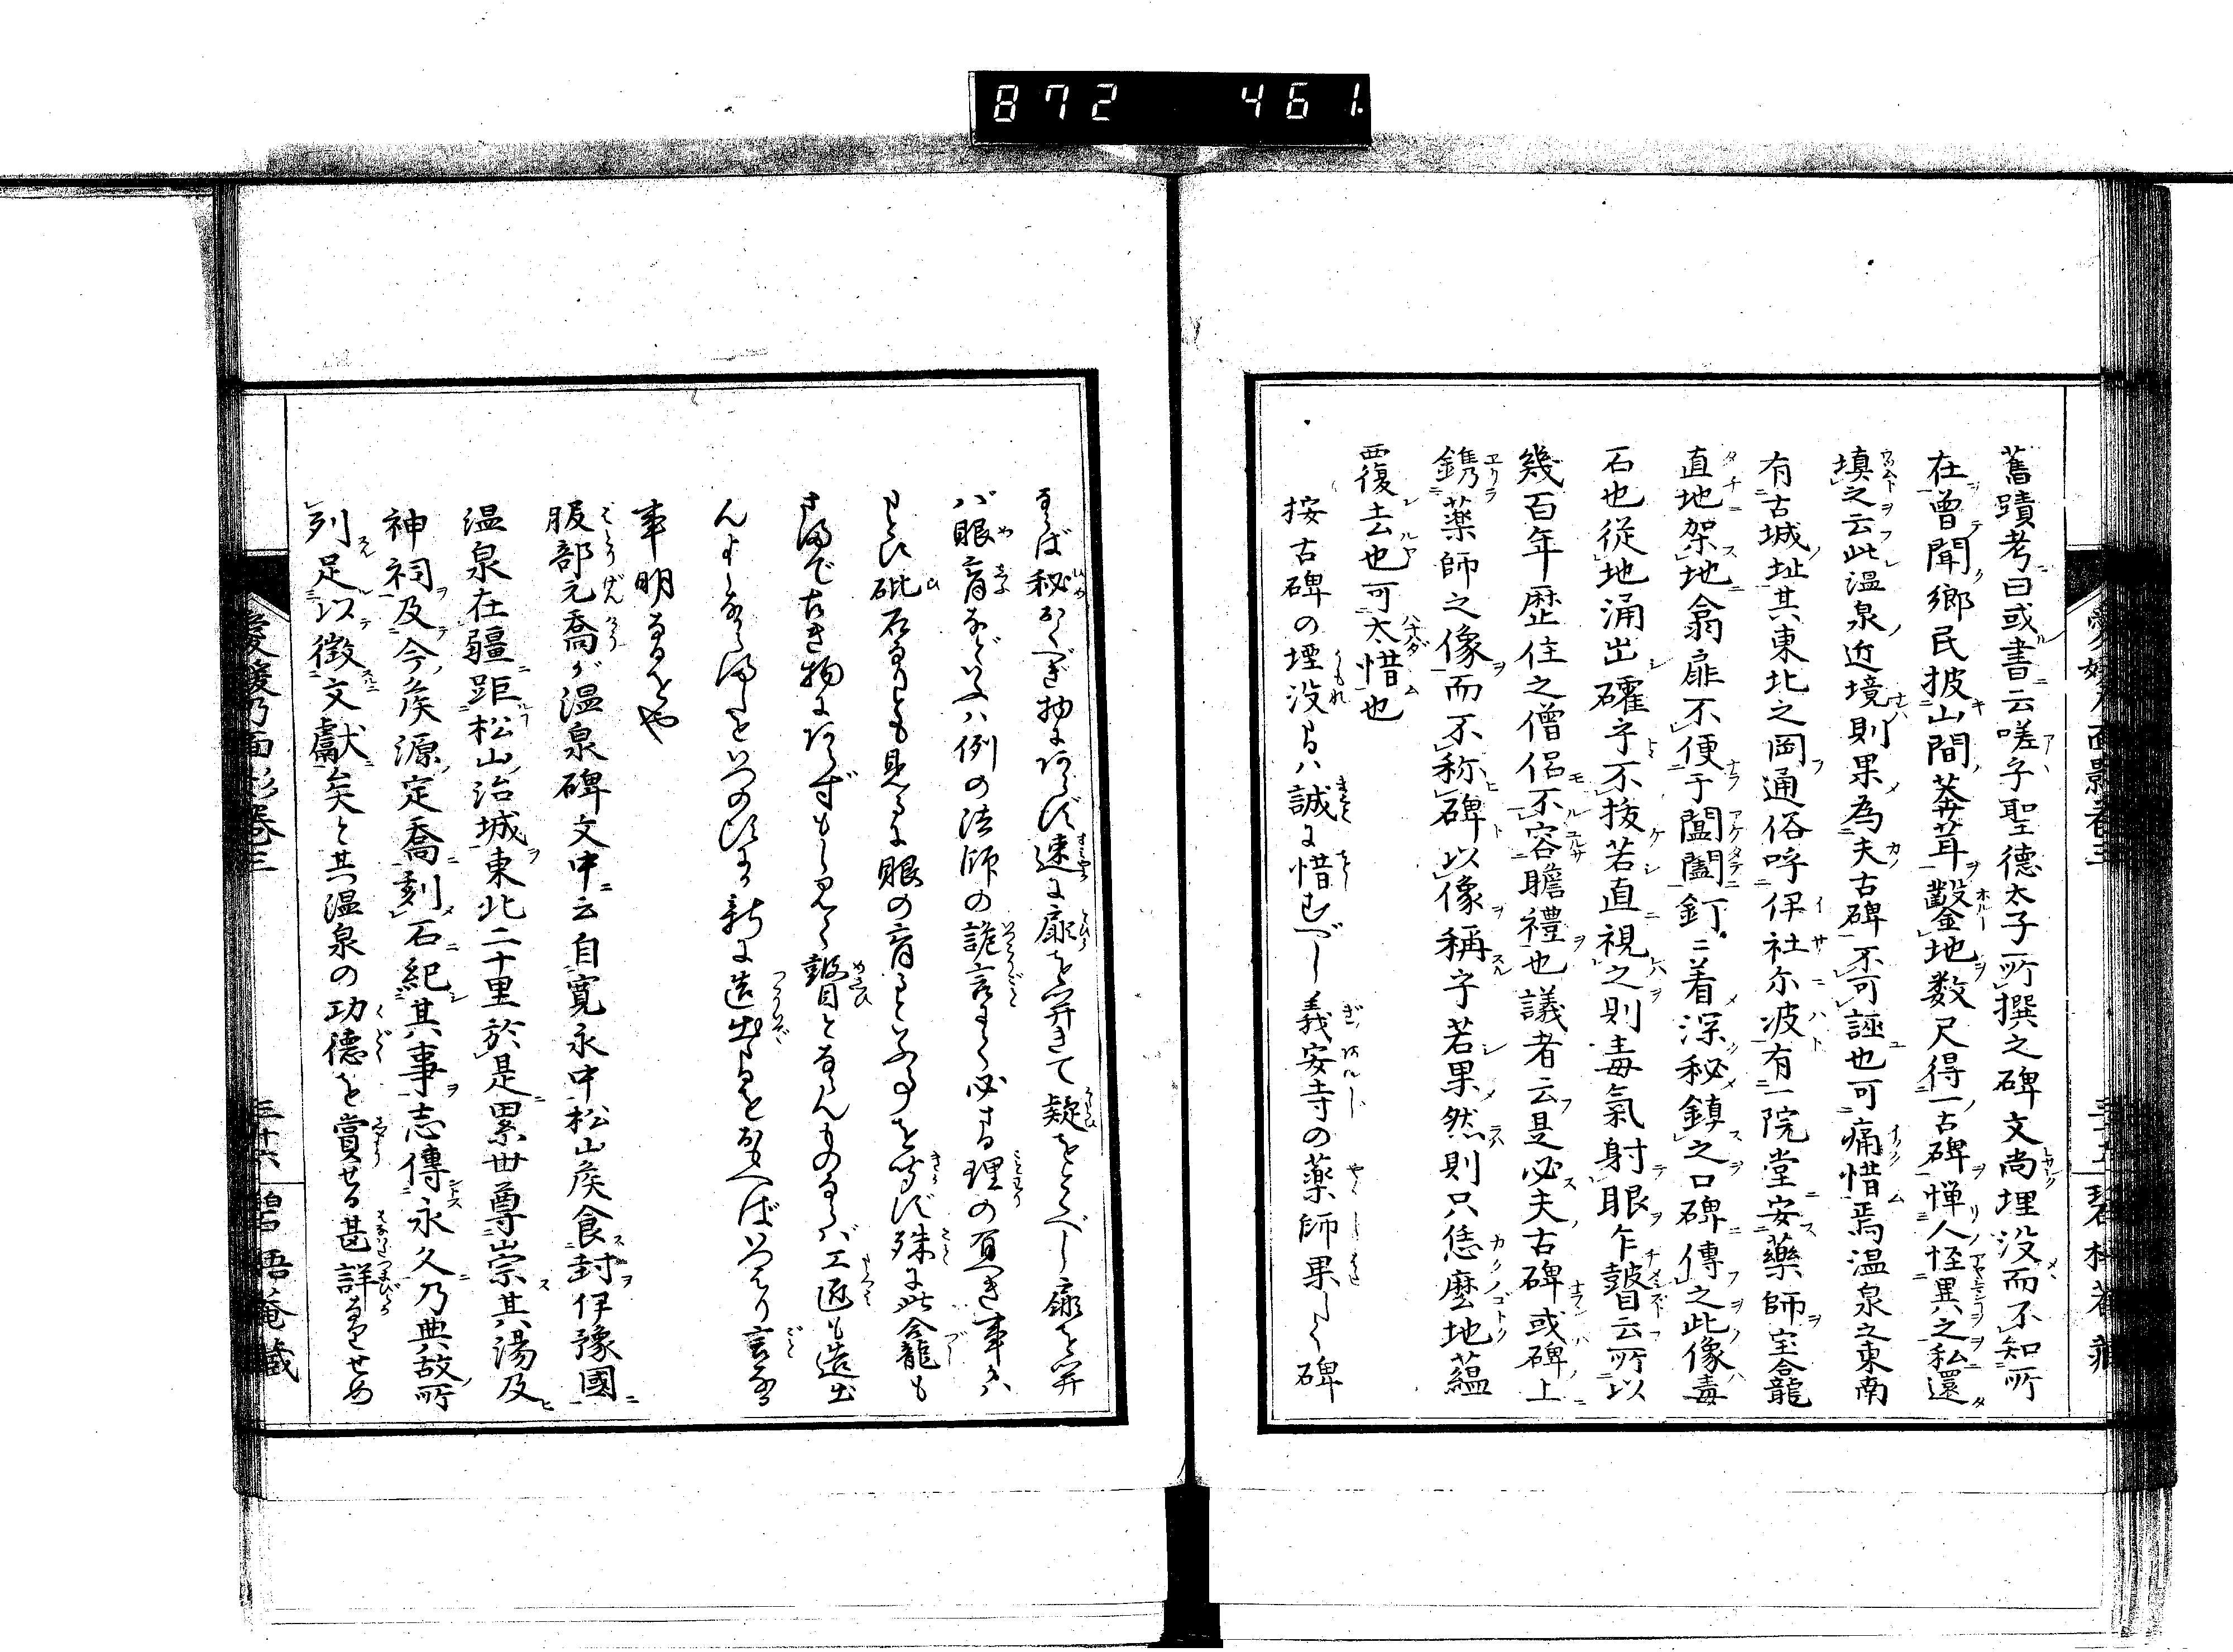 872 461.
愛媛乃面影巻三
舊蹟考曰或書云嗟乎聖德太子所撰之碑文尚埋没而不知所
在曽聞郷民披山間蓁茸鑿地数尺得一古碑憚人怪異之私還
填之云此温泉近境則果為夫古碑不可誣也可痛惜焉温泉之東南
有古城址其東北之岡通俗呼伊社尓波有一院堂安藥師宝龕
直地架地翕扉不便于闔闢釘着深秘鎮之口碑傳之此像毒
石也從地涌出礭乎不拔若直視之則毒氣射眼乍瞽云所以
幾百年歴住之僧侶不容瞻禮也議者云是必夫古碑或碑上
鐫薬師之像而不称碑以像稱乎若果然則只恁麼地蘊
覆去也可太惜也
按古碑の堙没るハ誠に惜むべし義安寺の薬師果して碑
ならば秘おくべき物にあらず速に扉を開きて疑をとくべし扉を開
バ眼盲などいふハ例の法師の詭言にて必する理の有べき事かハ
砒石なりとも見るに眼の盲るといふ事を聞ず殊に此龕も
まで古き物にあらずもし見て瞽となるんものならバ工匠も造出
新に造出
事明なるをや
服部元喬が温泉碑文中ニ云自寛永中松山矦食封伊豫國
温泉在疆距松山治城東北二十里於是累世尊崇其湯及
神祠及今矦源定喬刻石紀其事志傳永久乃典故所
列足以徴文獻矣と其温泉の功德を賞せる甚詳なるせめ
愛媛乃面影巻三
三十六
碧梧菴蔵